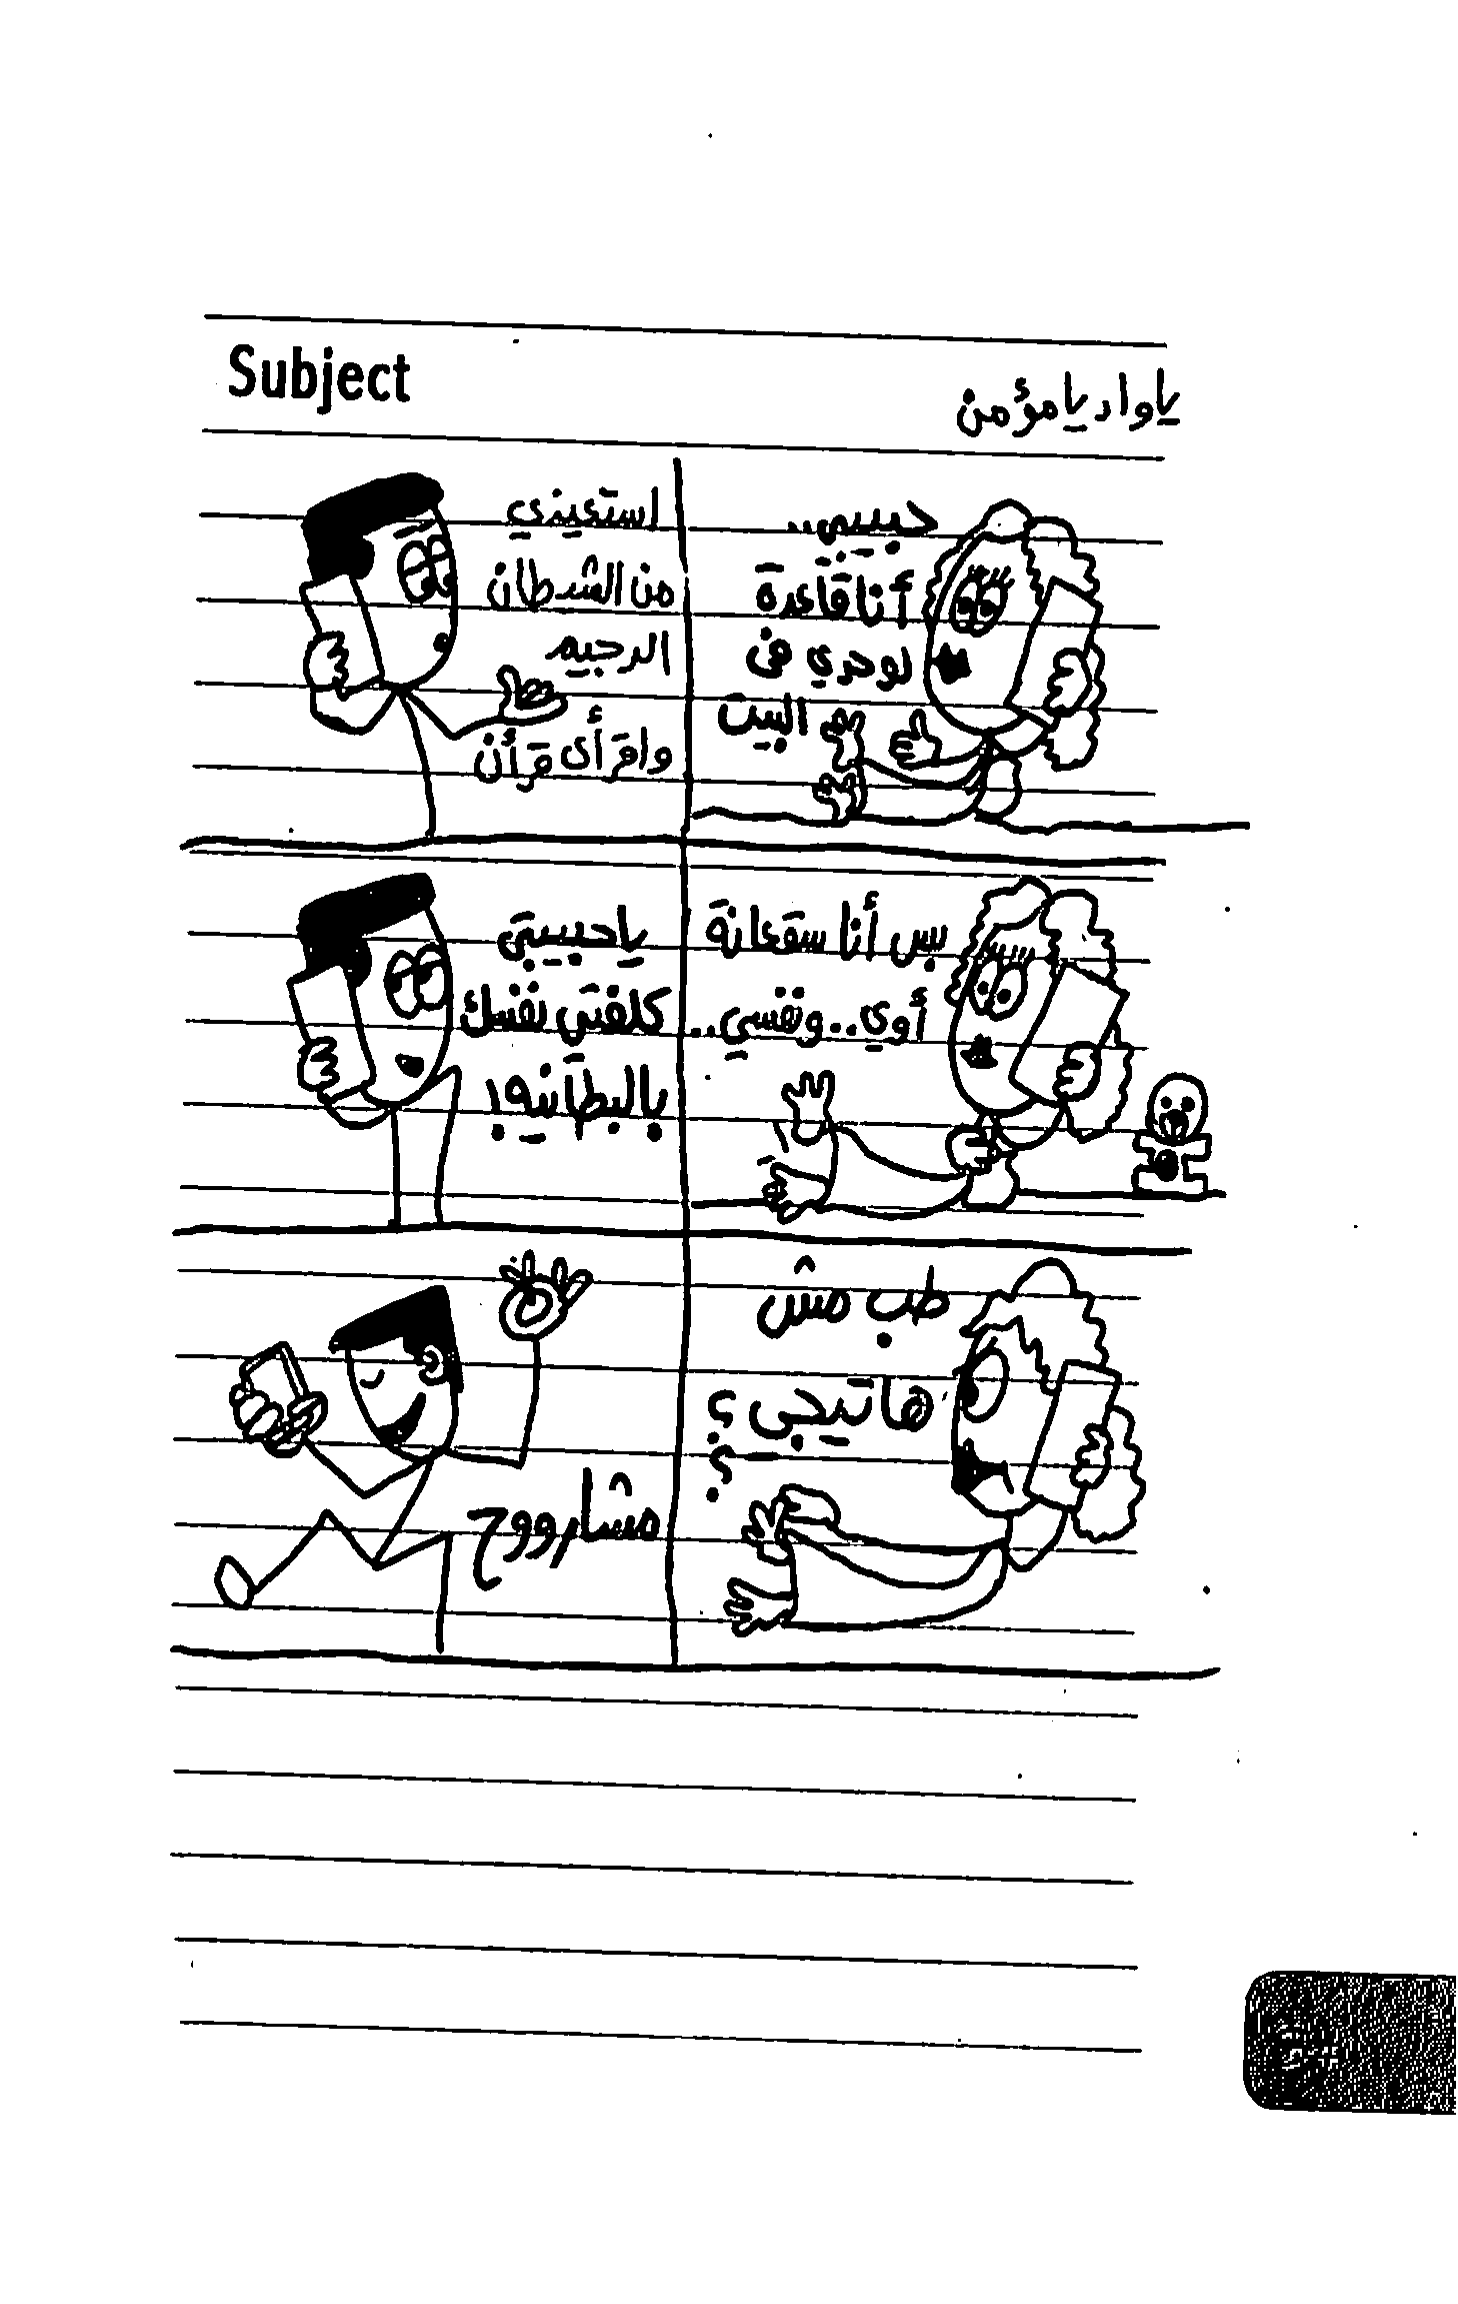 Subject
ياواد يا مؤمن
حبيبي..
أنا قاعدة
لوحدي فى
البيت
استعيذي
من الشيطان
الرجيم
واقرأى قرأن
بس أنا سقعانة
أوي.. ونفسي..
ياحبيبتي
كلفتي نفسك
بالبطانية!
طب مش
هاتيجي؟
؟
مشارووح